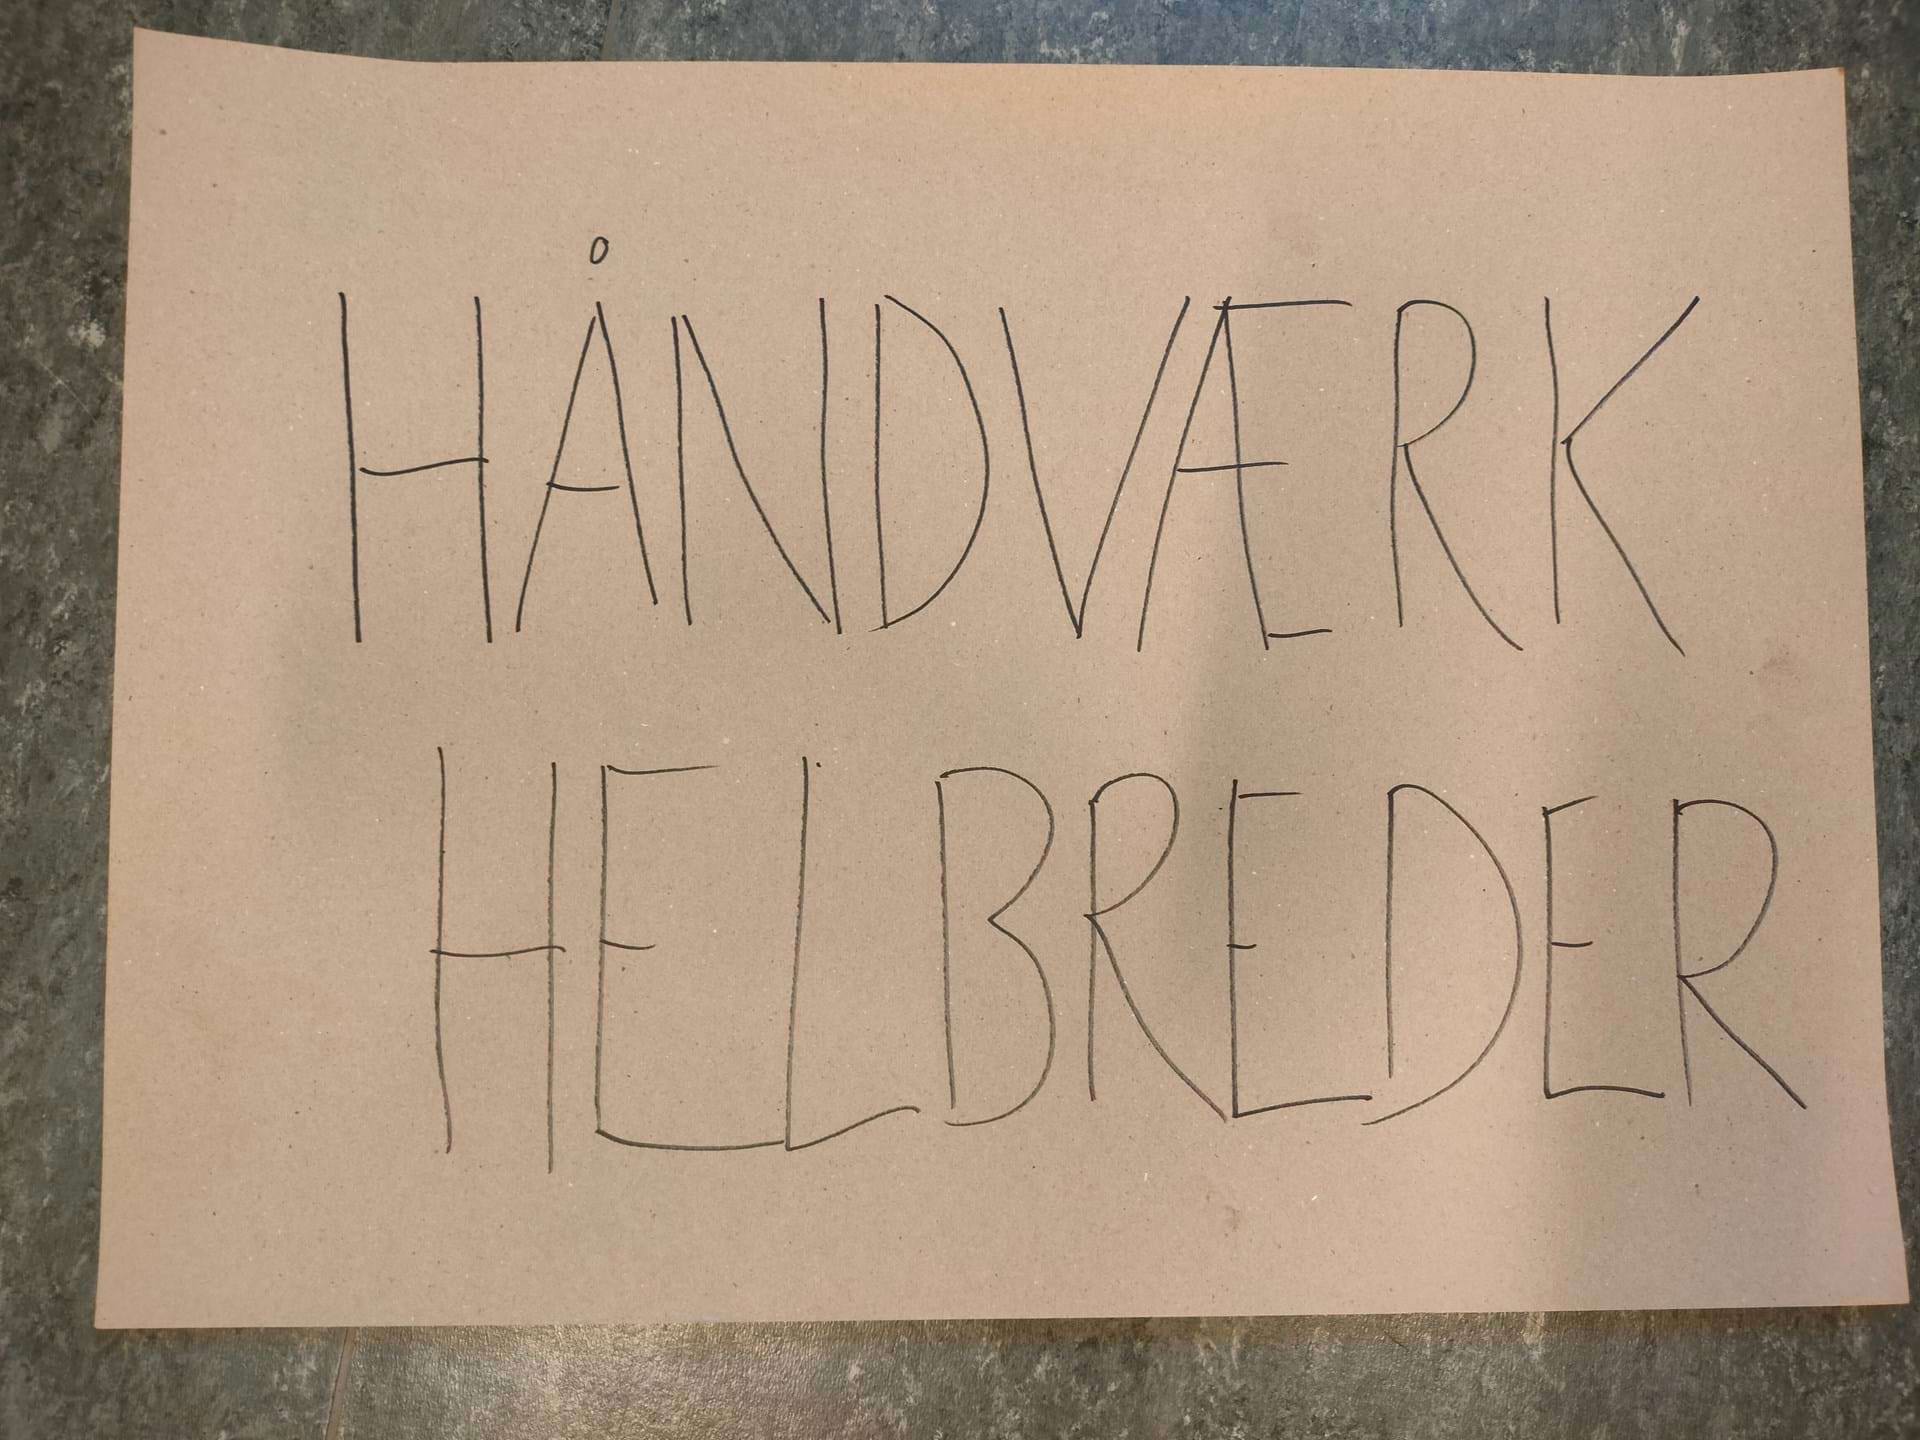 HÅNDVÆRK
HELBREDER